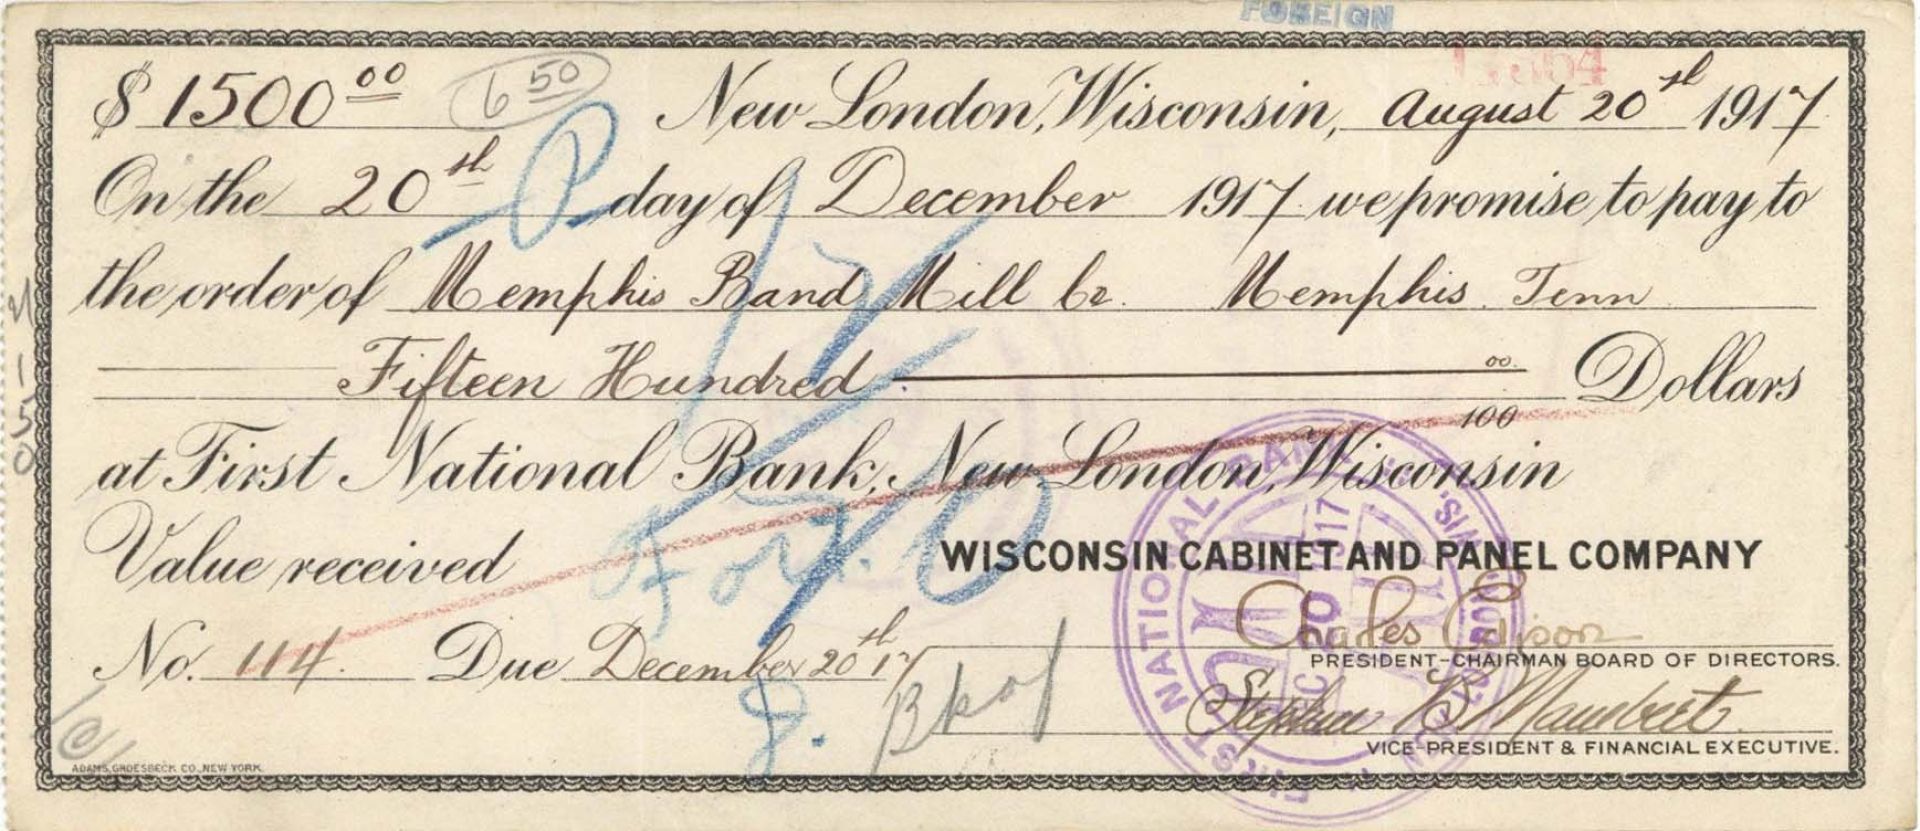 FOREIGN
$ 1500 00 6 50 New London, Wisconsin, August 20th 1917
On the 20th day of December 1917 we promise to pay to
the order of Memphis Band Mill Co. Memphis. Tenn
Fifteen Hundred 00/100 Dollars
at First National Bank, New London, Wisconsin
Value received
WISCONSIN CABINET AND PANEL COMPANY
Charles Edison
PRESIDENT-CHAIRMAN BOARD OF DIRECTORS.
No. 114. Due December 20th 17
Stephen B Mambert
VICE-PRESIDENT & FINANCIAL EXECUTIVE.
ADAMS, GROESBECK CO., NEW YORK.
FIRST NATIONAL BANK
PAID
DEC 20 1917
NEW LONDON, WIS.